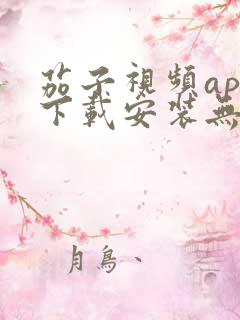 茄子視頻ap
下載安裝無
月鳥、